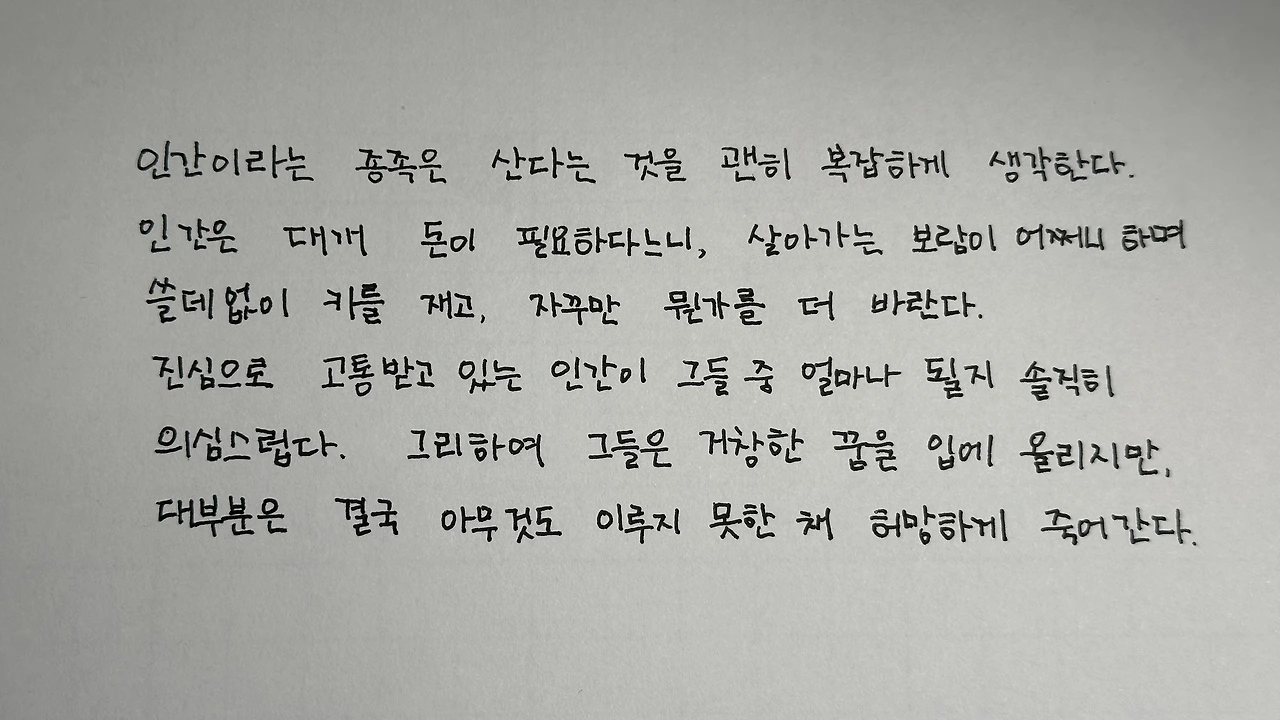 인간이라는 종족은 산다는 것을 괜히 복잡하게 생각한다.
인간은 대개 돈이 필요하다느니, 살아가는 보람이 어쩌니 하며
쓸데없이 키를 재고, 자꾸만 뭔가를 더 바란다.
진심으로 고통받고 있는 인간이 그들 중 얼마나 될지 솔직히
의심스럽다. 그리하여 그들은 거창한 꿈을 입에 올리지만,
대부분은 결국 아무것도 이루지 못한 채 허망하게 죽어간다.